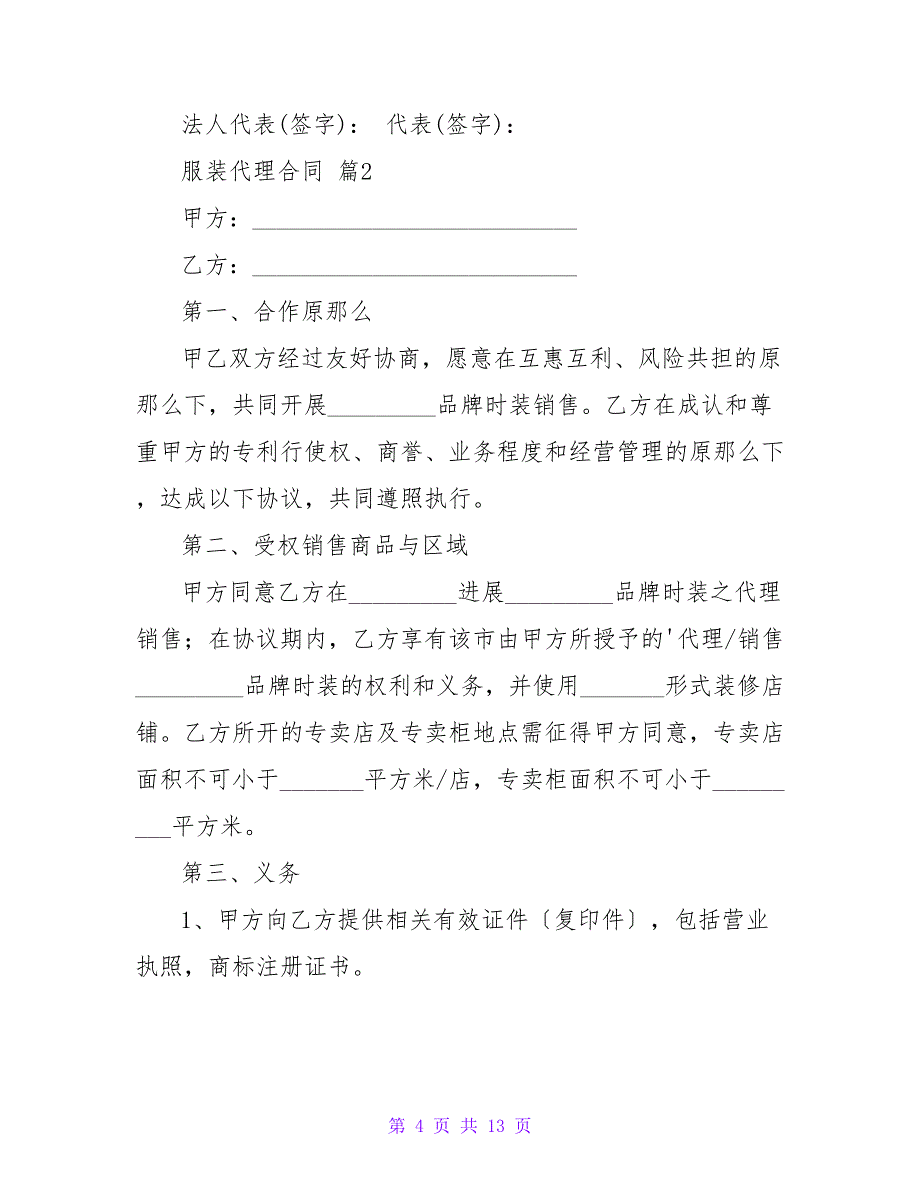 法人代表(签字)： 代表(签字)：
服装代理合同 篇2
甲方：___________________________
乙方：___________________________
第一、合作原那么
甲乙双方经过友好协商，愿意在互惠互利、风险共担的原
那么下，共同开展_________品牌时装销售。乙方在成认和尊
重甲方的专利行使权、商誉、业务程度和经营管理的原那么下
，达成以下协议，共同遵照执行。
第二、受权销售商品与区域
甲方同意乙方在_________进展_________品牌时装之代理
销售；在协议期内，乙方享有该市由甲方所授予的'代理/销售
_________品牌时装的权利和义务，并使用_______形式装修店
铺。乙方所开的专卖店及专卖柜地点需征得甲方同意，专卖店
面积不可小于_______平方米/店，专卖柜面积不可小于______
___平方米。
第三、义务
1、甲方向乙方提供相关有效证件〔复印件〕，包括营业
执照，商标注册证书。
第 4 页 共 13 页